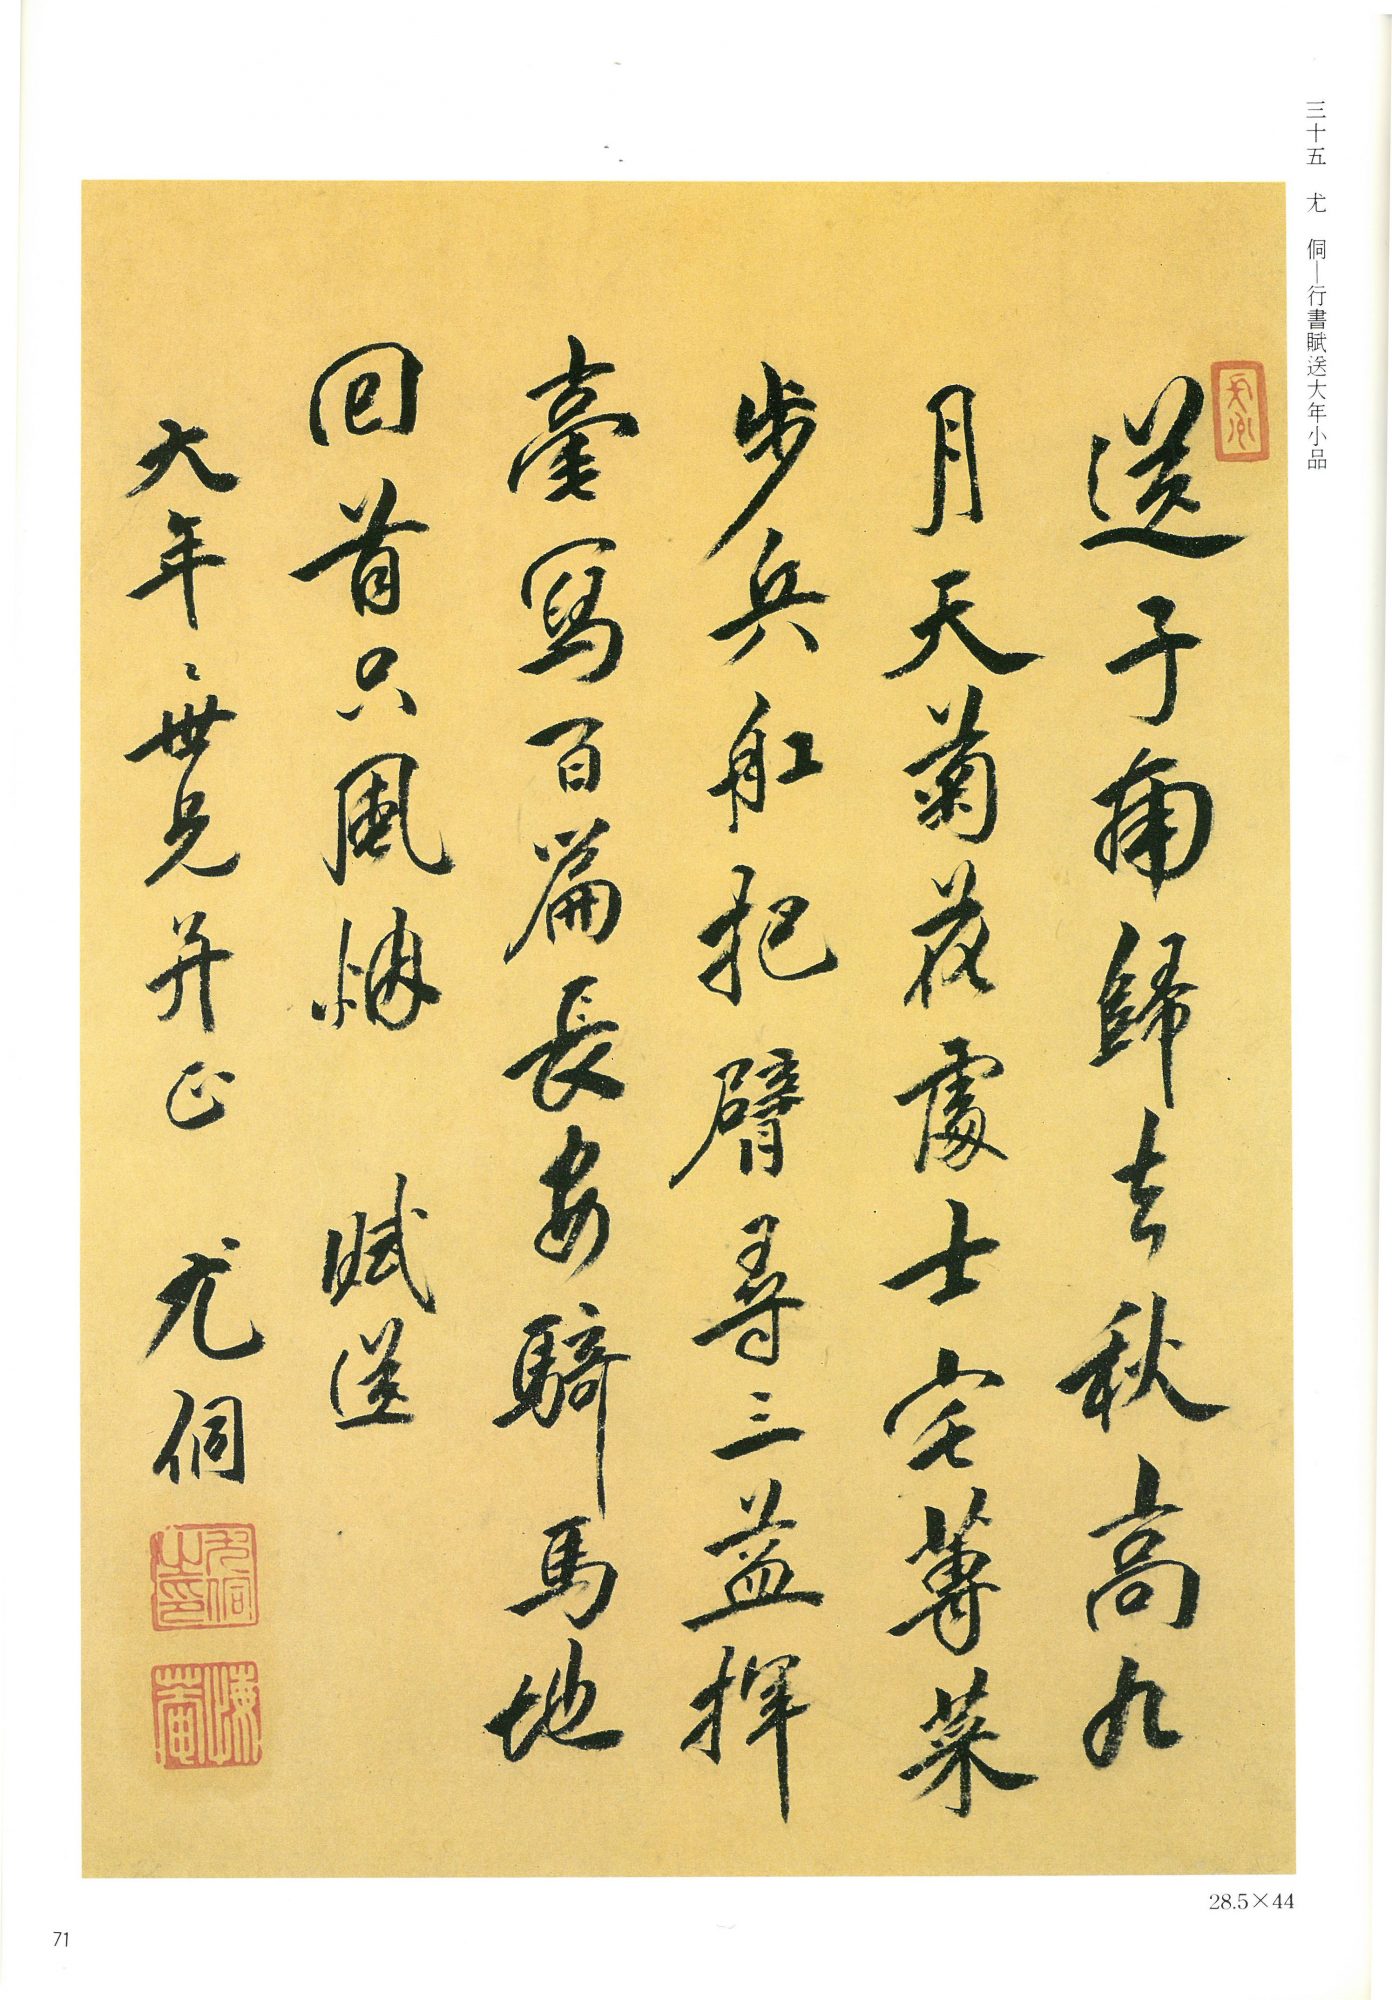 三十五　尤　侗—行書賦送大年小品
送子南歸去秋高九
月天菊花處士宅蓴菜
步兵舡把臂尋三益揮
毫寫百篇長安騎馬地
回首只風烟　賦送
大年々世兄并正　尤侗
尤侗之印
悔菴
28.5×44
71